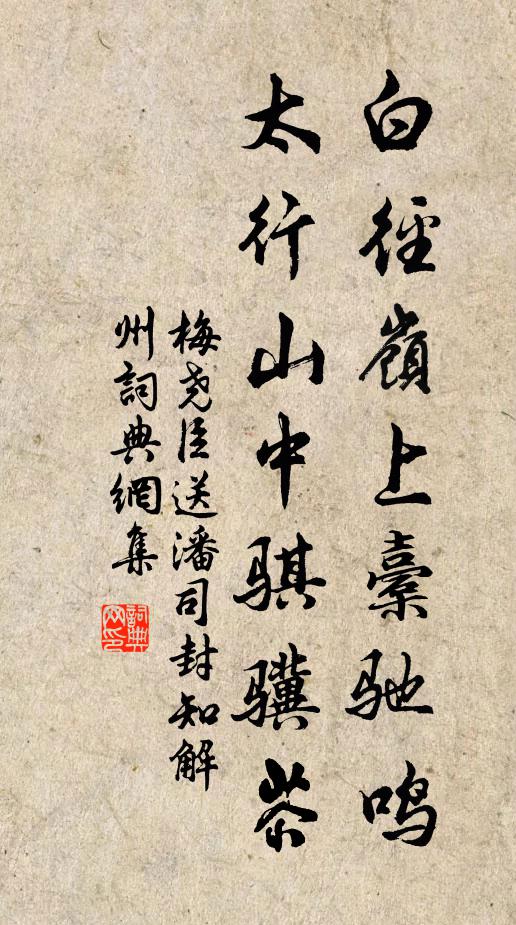 白徑嶺上橐驰鸣
太行山中骐骥
梅尧臣送潘司封知解
州詞典網集
詞典
网印